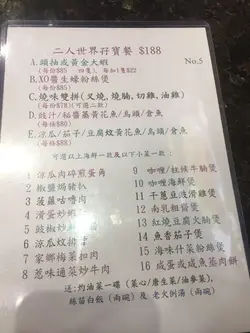 二人世界孖寶餐 $188
No.5
A.頭抽或黃金大蝦
(每份$85 四隻), 每加1隻$22
B.XO醬生蠔粉絲煲
(每份$85)
C.燒味雙拼(叉燒, 燒腩, 切雞, 油雞)
(每份$78)(可選二款)
D.豉汁/秘醬蒸黃花魚/烏頭/倉魚
(每條$88)
E.涼瓜/茄子/豆腐炆黃花魚/烏頭/倉魚
(每條$88)
可選以上海鮮一款及以下小菜一款:
1 涼瓜肉碎煎蛋角
2 椒鹽焗豬扒
3 菠蘿咕嚕肉
4 滑蛋炒蝦仁
5 豉椒炒
6 涼瓜炆排骨
7 家鄉梅菜扣肉
8 惹味通菜炒牛肉
9 咖喱/柱侯牛腩煲
10 咖喱海鮮煲
11 干蔥豆豉滑雞煲
12 南乳粗齋煲
13 紅燒豆腐火腩煲
14 魚香茄子煲
15 海味什菜粉絲煲
16 咸蛋或咸魚蒸肉餅
送:灼油菜一碟 (菜心/唐生菜/油麥菜),
絲苗白飯 (兩碗) 及 老火例湯 (兩碗)